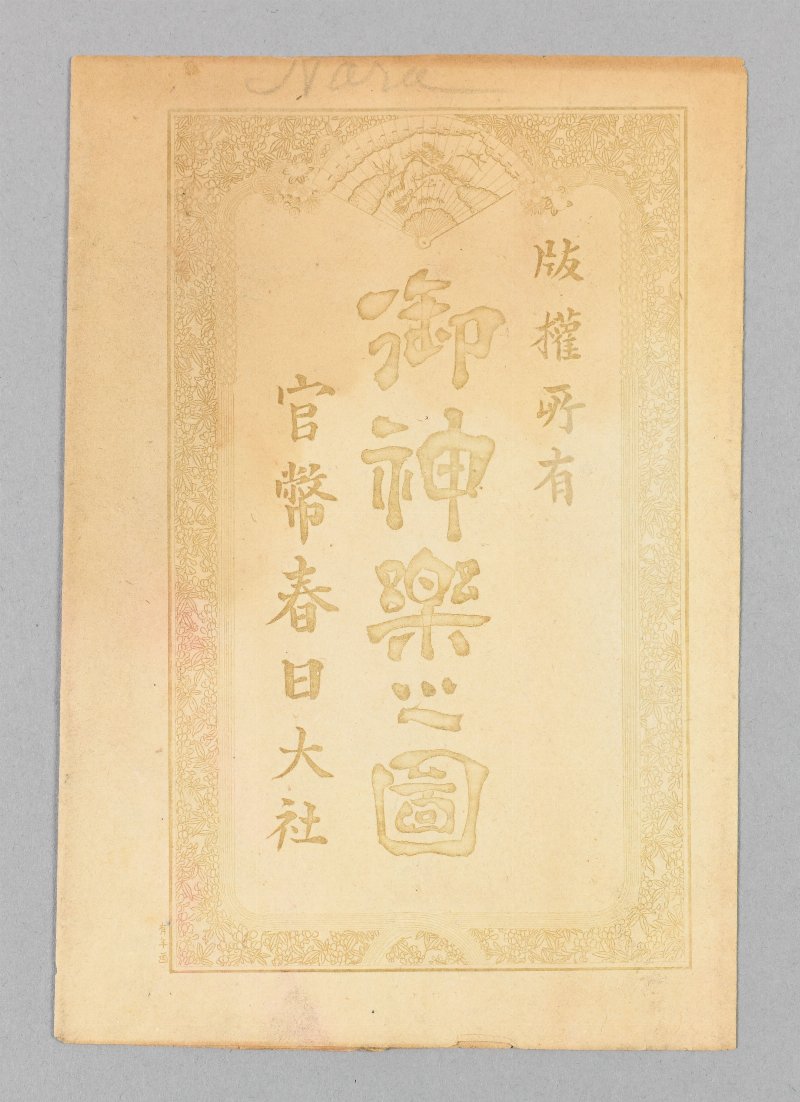 Nara
版權所有
御神樂之圖
官幣春日大社